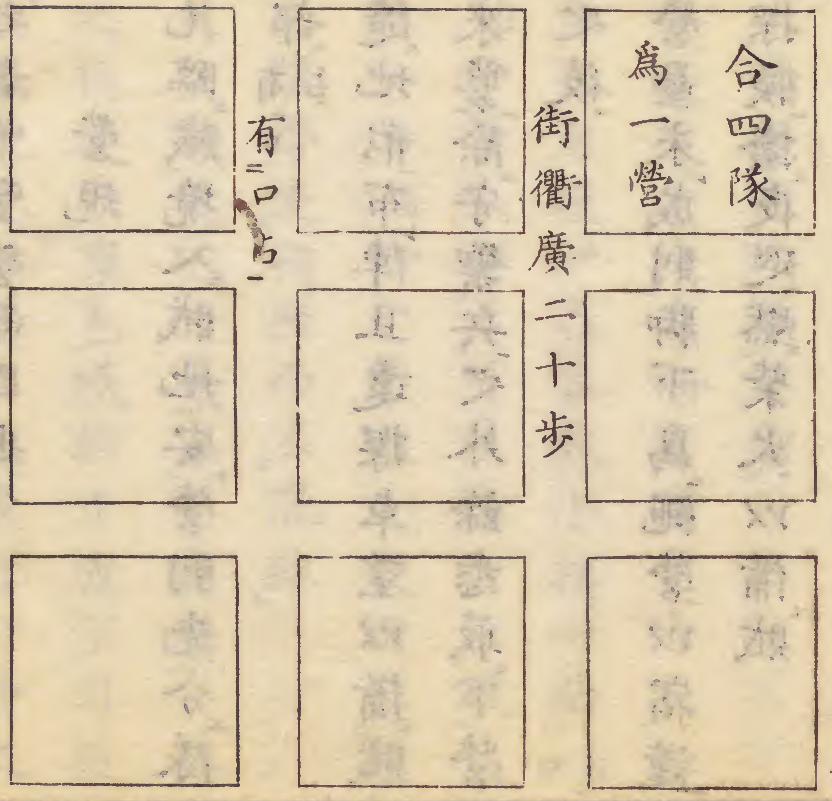 合四隊
爲一營
街衢廣二十步
有口